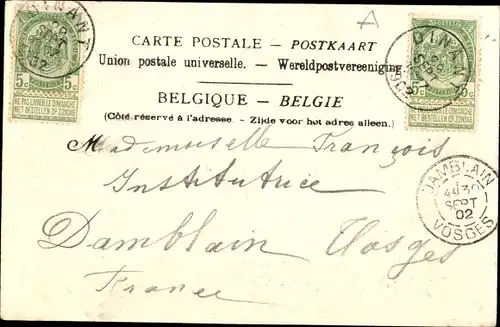 CARTE POSTALE – POSTKAART
Union postale universelle. – Wereldpostvereeniging
BELGIQUE – BELGIE
(Côté réservé à l'adresse. - Zijde voor het adres alleen.)
DINANT
SEPT
02
5c 5c
NE PAS LIVRER LE DIMANCHE
NIET BESTELLEN OP ZONDAG
DINANT
SEPT
5c
NE PAS LIVRER LE DIMANCHE
NIET BESTELLEN OP ZONDAG
Mademoiselle François
Institutrice
Damblain Vosges
France
DAMBLAIN
SEPT
02
VOSGES